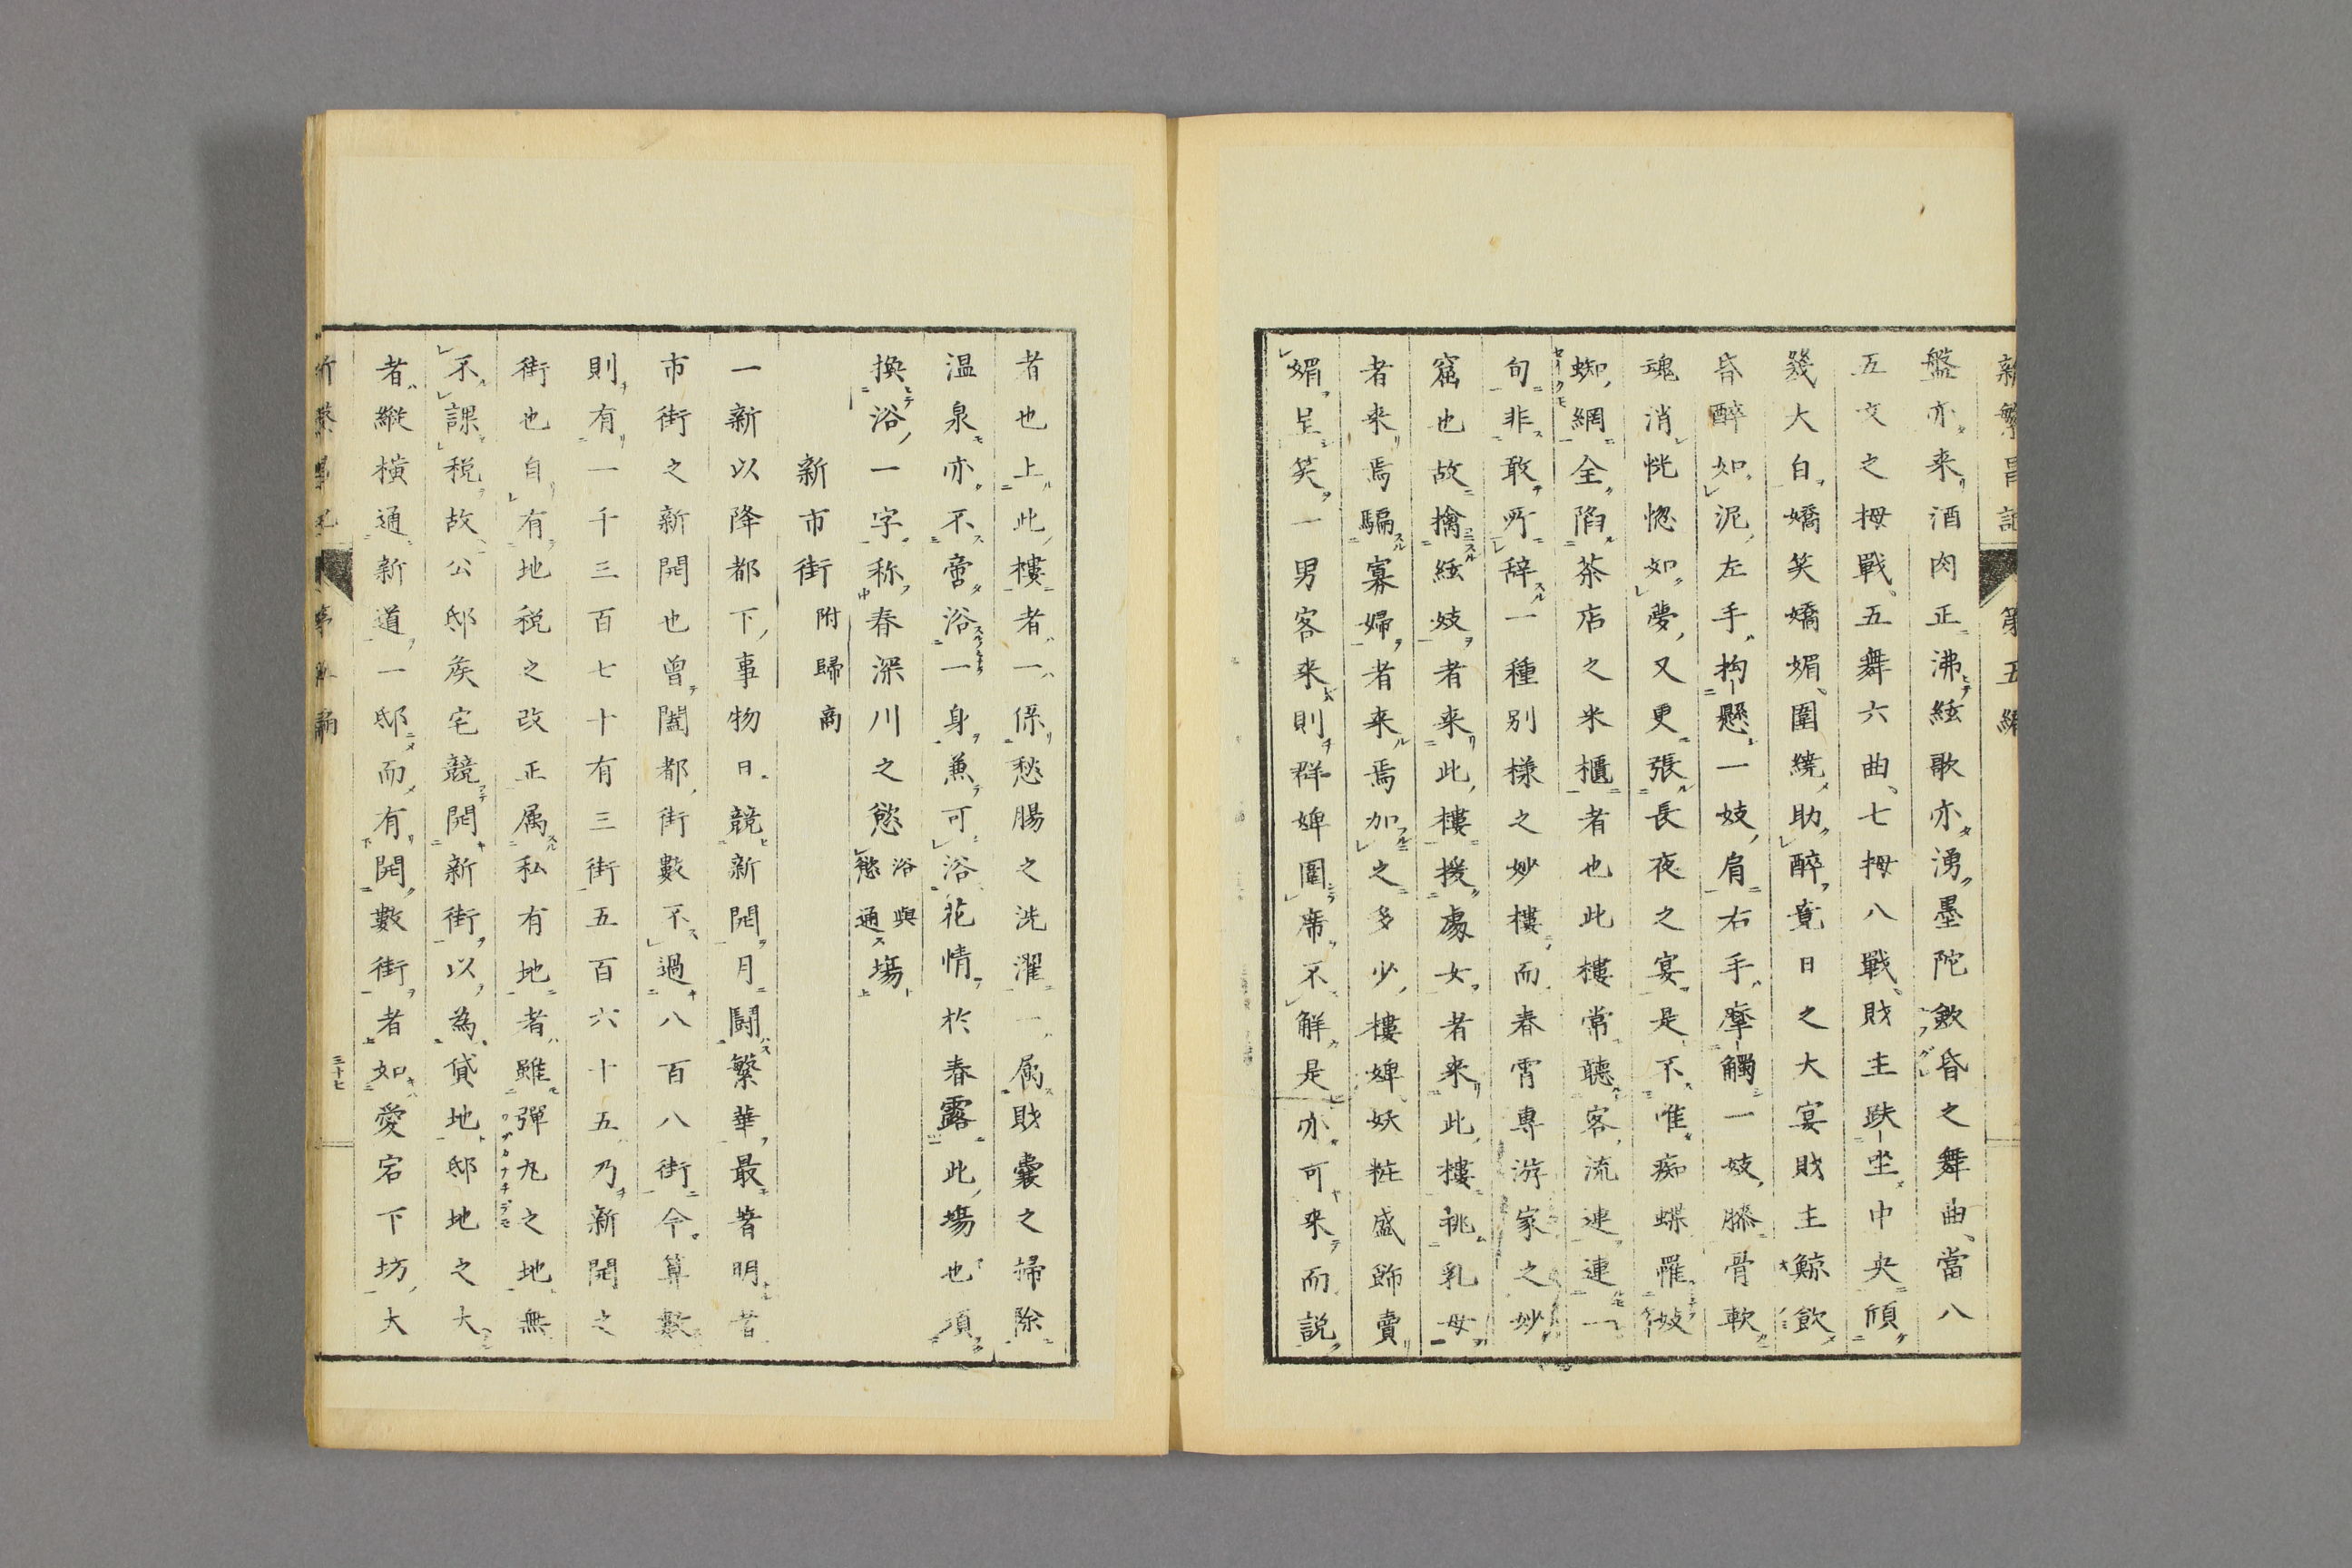 新繁昌記 第五編
盤亦来酒肉正沸絃歌亦湧墨陀歛昏之舞曲、當八
五文之拇戰、五舞六曲、七拇八戰、財主趺坐中央傾
幾大白嬌笑嬌媚、圍繞助醉竟日之大宴財主鯨飲
昏醉如泥、左手抅懸一妓、肩右手摩觸一妓、膝骨軟
魂消恍惚如夢、又更張長夜之宴是不唯痴蝶罹
蜘網全陷茶店之米櫃者也此樓常聽客流連連一
句非敢所辞一種別様之妙樓而春宵專游家之妙
窟也故擒絃妓者来此樓援處女者来此樓祧乳母
者来焉騙寡婦者来焉加之多少樓婢妖粧盛飾賣
媚呈笑一男客来則群婢圍席不解是亦可来而説
者也上此樓者一係愁腸之洗濯一属財嚢之掃除
温泉亦不啻浴一身兼可浴花情於春露此塲也須
換浴一字称春深川之慾浴與慾通塲
新市街 附歸商
一新以降都下事物日競新開月鬪繁華最著明者
市街之新開也曾闔都街數不過八百八街今算數
則有一千三百七十有三街五百六十五乃新開之
街也自有地税之改正属私有地者雖彈丸之地無
不課税故公邸矦宅競開新街以為貸地邸地之大
者縱横通新道一邸而有開數街者如愛宕下坊大
三十七